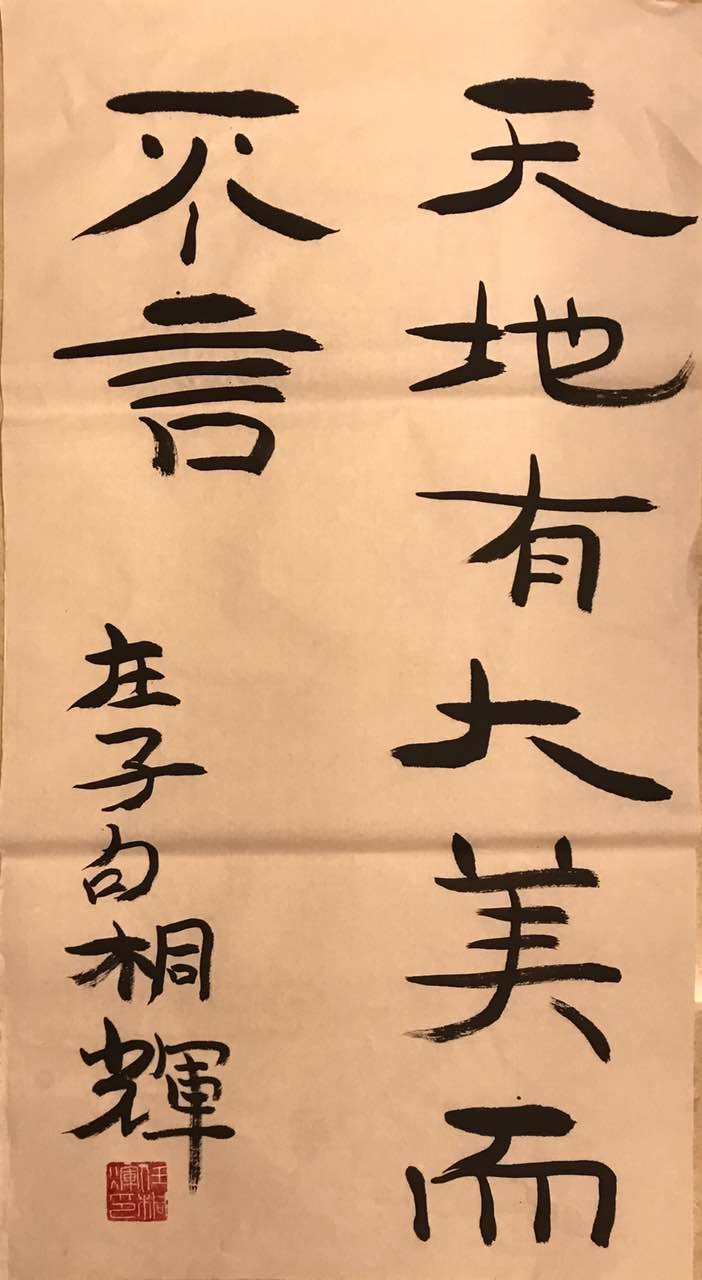 天地有大美而
不言
庄子句桐輝